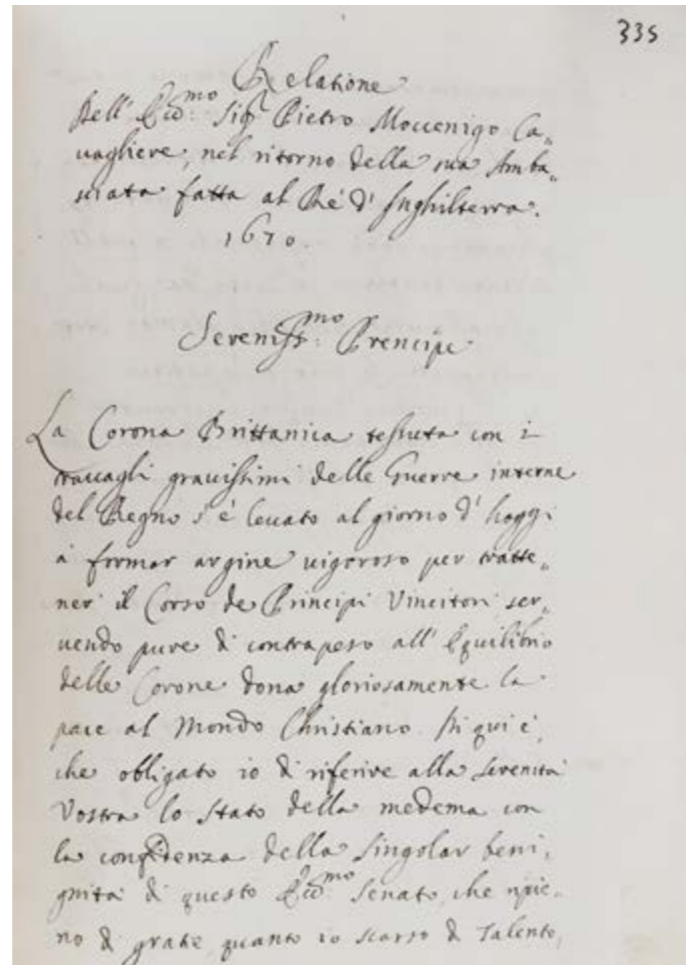 335
Relatione
Dell' Ecc:mo Sigr Pietro Mocenigo Ca„
vagliere, nel ritorno della sua Amba„
sciata fatta al Rè d' Inghilterra.
1670.
Sereniss:mo Prencipe
La Corona Brittanica tessuta con i
travagli gravissimi delle Guerre interne
del Regno s' è levato al giorno d' hoggi
à formar argine vigoroso per tratte„
ner il Corso de Principi Vincitori ser„
vendo pure di contrapeso all' Equilibrio
delle Corone dona gloriosamente la
pace al Mondo Christiano. Di qui è,
che obligato io di riferire alla Serenità
Vostra lo Stato della medema con
la confidenza della singolar beni„
gnità di questo Ecc:mo Senato, che ripie„
no di gratie quanto io scarso di Talento,